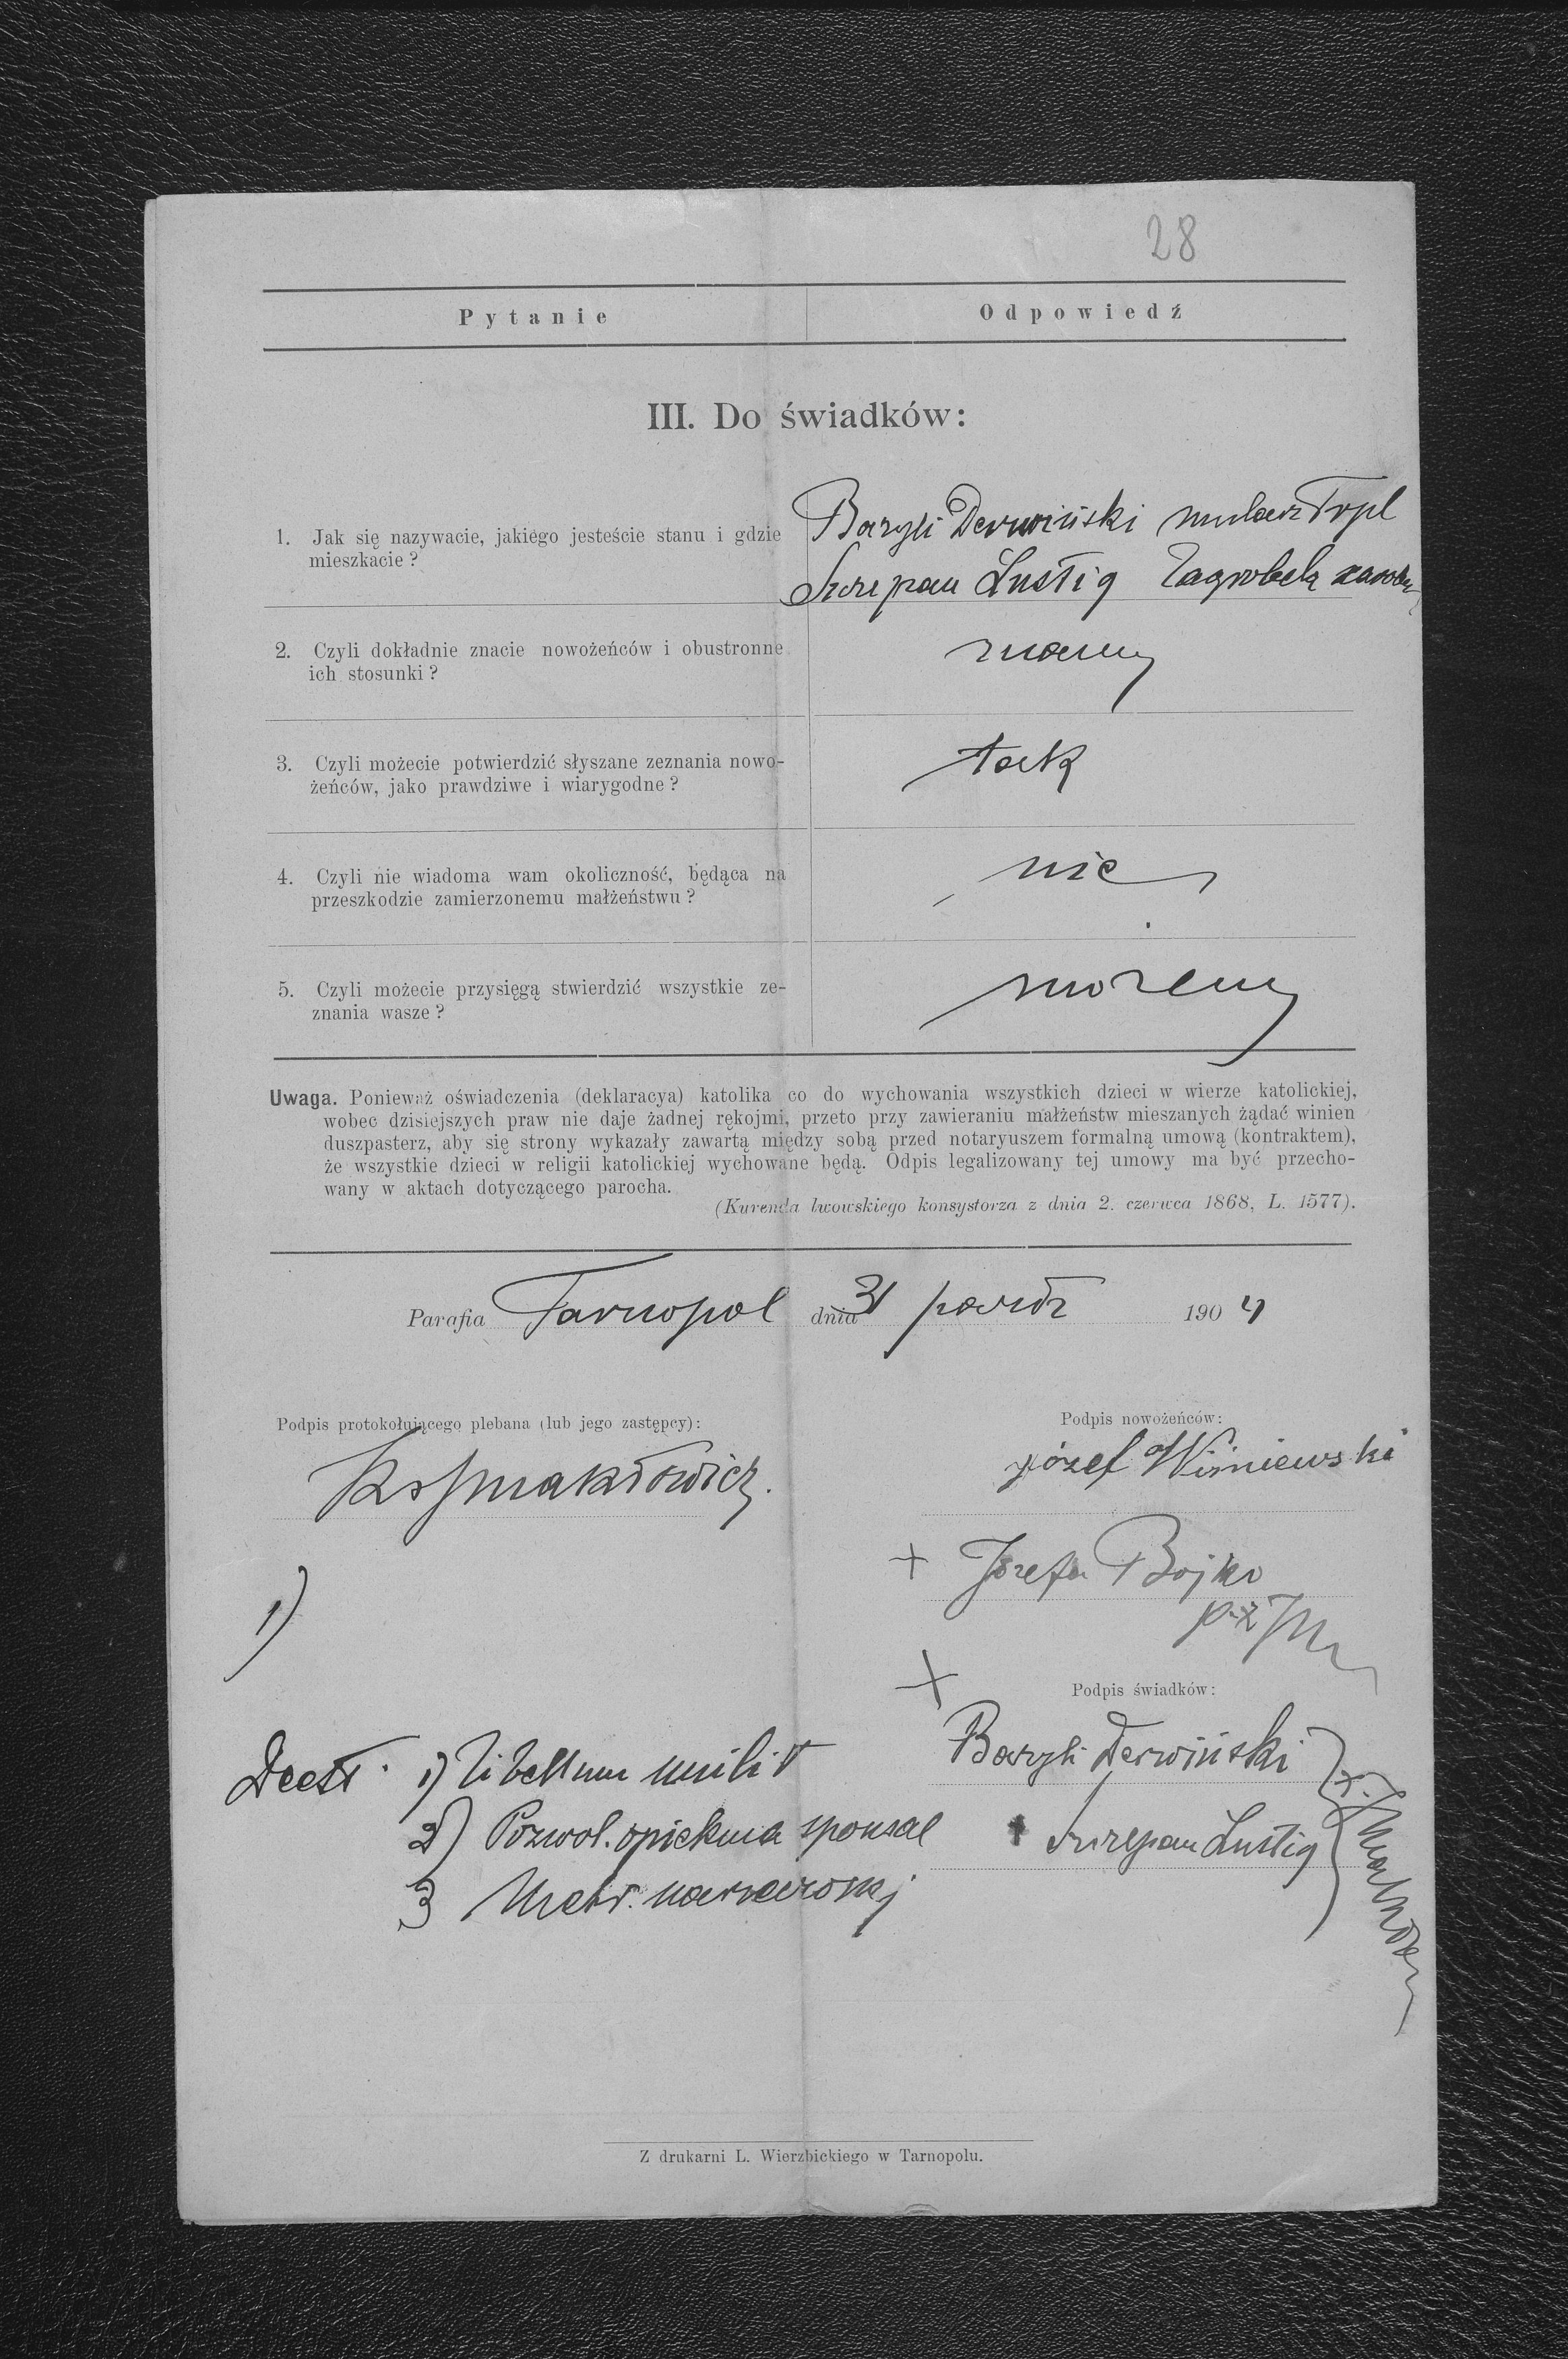 28
Pytanie Odpowiedź
III. Do świadków:
1. Jak się nazywacie, jakiego jesteście stanu i gdzie
mieszkacie ?
Bazyli Derwiński mularz Trpl
Szczepan Lustig Zagrobela
2. Czyli dokładnie znacie nowożeńców i obustronne
ich stosunki ?
znamy
3. Czyli możecie potwierdzić słyszane zeznania nowo-
żeńców, jako prawdziwe i wiarygodne ?
tak
4. Czyli nie wiadoma wam okoliczność, będąca na
przeszkodzie zamierzonemu małżeństwu ?
nie
5. Czyli możecie przysięgą stwierdzić wszystkie ze-
znania wasze ?
możemy
Uwaga. Ponieważ oświadczenia (deklaracya) katolika co do wychowania wszystkich dzieci w wierze katolickiej,
wobec dzisiejszych praw nie daje żadnej rękojmi, przeto przy zawieraniu małżeństw mieszanych żądać winien
duszpasterz, aby się strony wykazały zawartą między sobą przed notaryuszem formalną umową (kontraktem),
że wszystkie dzieci w religii katolickiej wychowane będą. Odpis legalizowany tej umowy ma być przecho-
wany w aktach dotyczącego parocha.
(Kurenda lwowskiego konsystorza z dnia 2. czerwca 1868, L. 1577).
Parafia Tarnopol dnia 31 paźdz 1904
Podpis protokołującego plebana (lub jego zastępcy):
Podpis nowożeńców:
Józef Wiśniewski
+ Józefa Bojko
1)
+
Podpis świadków:
Bazyli Derwiński
Szczepan Lustig
Deest. 1) Libellum milit
2) Pozwol. opiekuna sponsae
3 Metr. narzeczonej
Z drukarni L. Wierzbickiego w Tarnopolu.